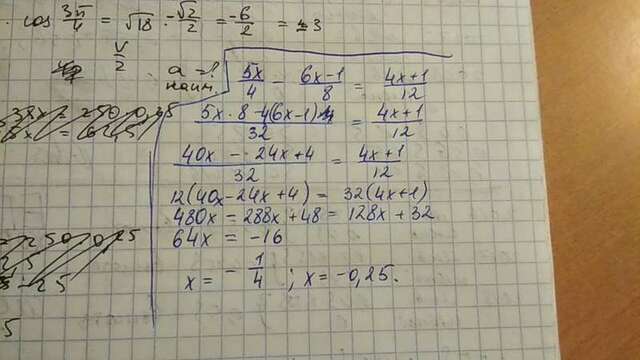 cos 3π/4 = √18 · -√2/2 = -6/2 = -3
√/2
а = ?
наим.
5x/4 - 6x-1/8 = 4x+1/12
5x·8-4(6x-1)/32 = 4x+1/12
40x - 24x+4/32 = 4x+1/12
12(40x-24x+4) = 32(4x+1)
480x = 288x+48 = 128x+32
64x = -16
x = -1/4 ; x = -0,25.
5